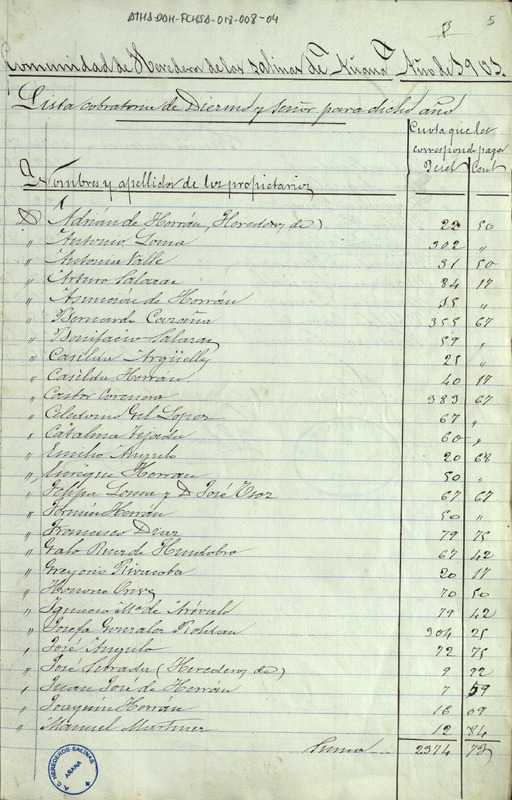 ATHA-DAH-FCHSA-018-008-04
5
Comunidad de Herederos de las Salinas de Añana Año de 1903.
Lista cobratoria de Diezmo y señor para dicho año
Cuota que les
corresponde pagar
Nombres y apellidos de los propietarios Peset Cent
Adrian de Herrán, Herederos de) 22 50
" Antonio Loma 302 "
" Antonia Valle 31 50
" Arturo Salazar 84 17
" Asunción de Herrán 15 "
" Bernardo Cazaña 355 67
" Bonifacio Salazar 59 "
" Casilda Argüelles 25 "
" Casilda Herrán 40 17
" Castor Corcuera 383 67
" Celedonio Gil Lopez 67 "
" Catalina Tejada 60 "
" Emilio Angulo 20 68
" Enrique Herran 50 "
" Felipa Loma y D. José 67 67
" Fermín Herrán 50 "
" Francisco Diaz 79 75
" Galo Ruiz de 67 42
" Gregorio Rivacoba 20 17
" Honorio 70 50
" Ignacio Mª de Arévalo 79 42
" Josefa Gonzalez Roldan 304 25
" José Angulo 72 75
" José (Herederos de) 9 22
" Juan José de Herrán 7 59
" Joaquín Herrán 16 09
" Manuel Martinez 12 84
Suma 2374 73
A.C. HEREDEROS SALINAS
AÑANA